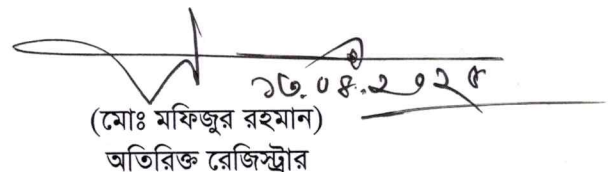 ১৩.০৪.২০২৫
(মোঃ মফিজুর রহমান)
অতিরিক্ত রেজিস্ট্রার